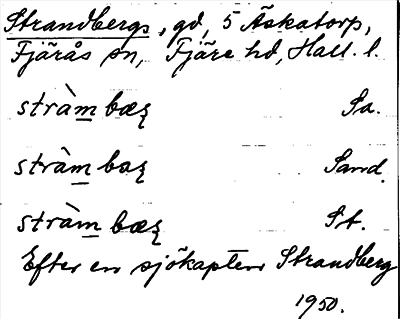 Strandbergs, gd, 5 Äskatorp,
Fjärås sn, Fjäre hd, Hall. l.
stràm bæʐ Sa.
stràm baʐ Sand.
stràm bæʐ St.
Efter en sjökapten Strandberg
1950.